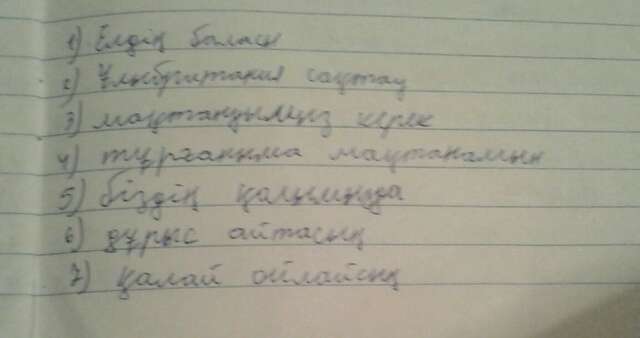 1) Елдің баласы
2) Ұлыбритания саутау
3) мақтануымыз керек
4) тұрғаныма мақтанамын
5) біздің қалымызда
6) дұрыс айтасың
7) қалай ойлайсың